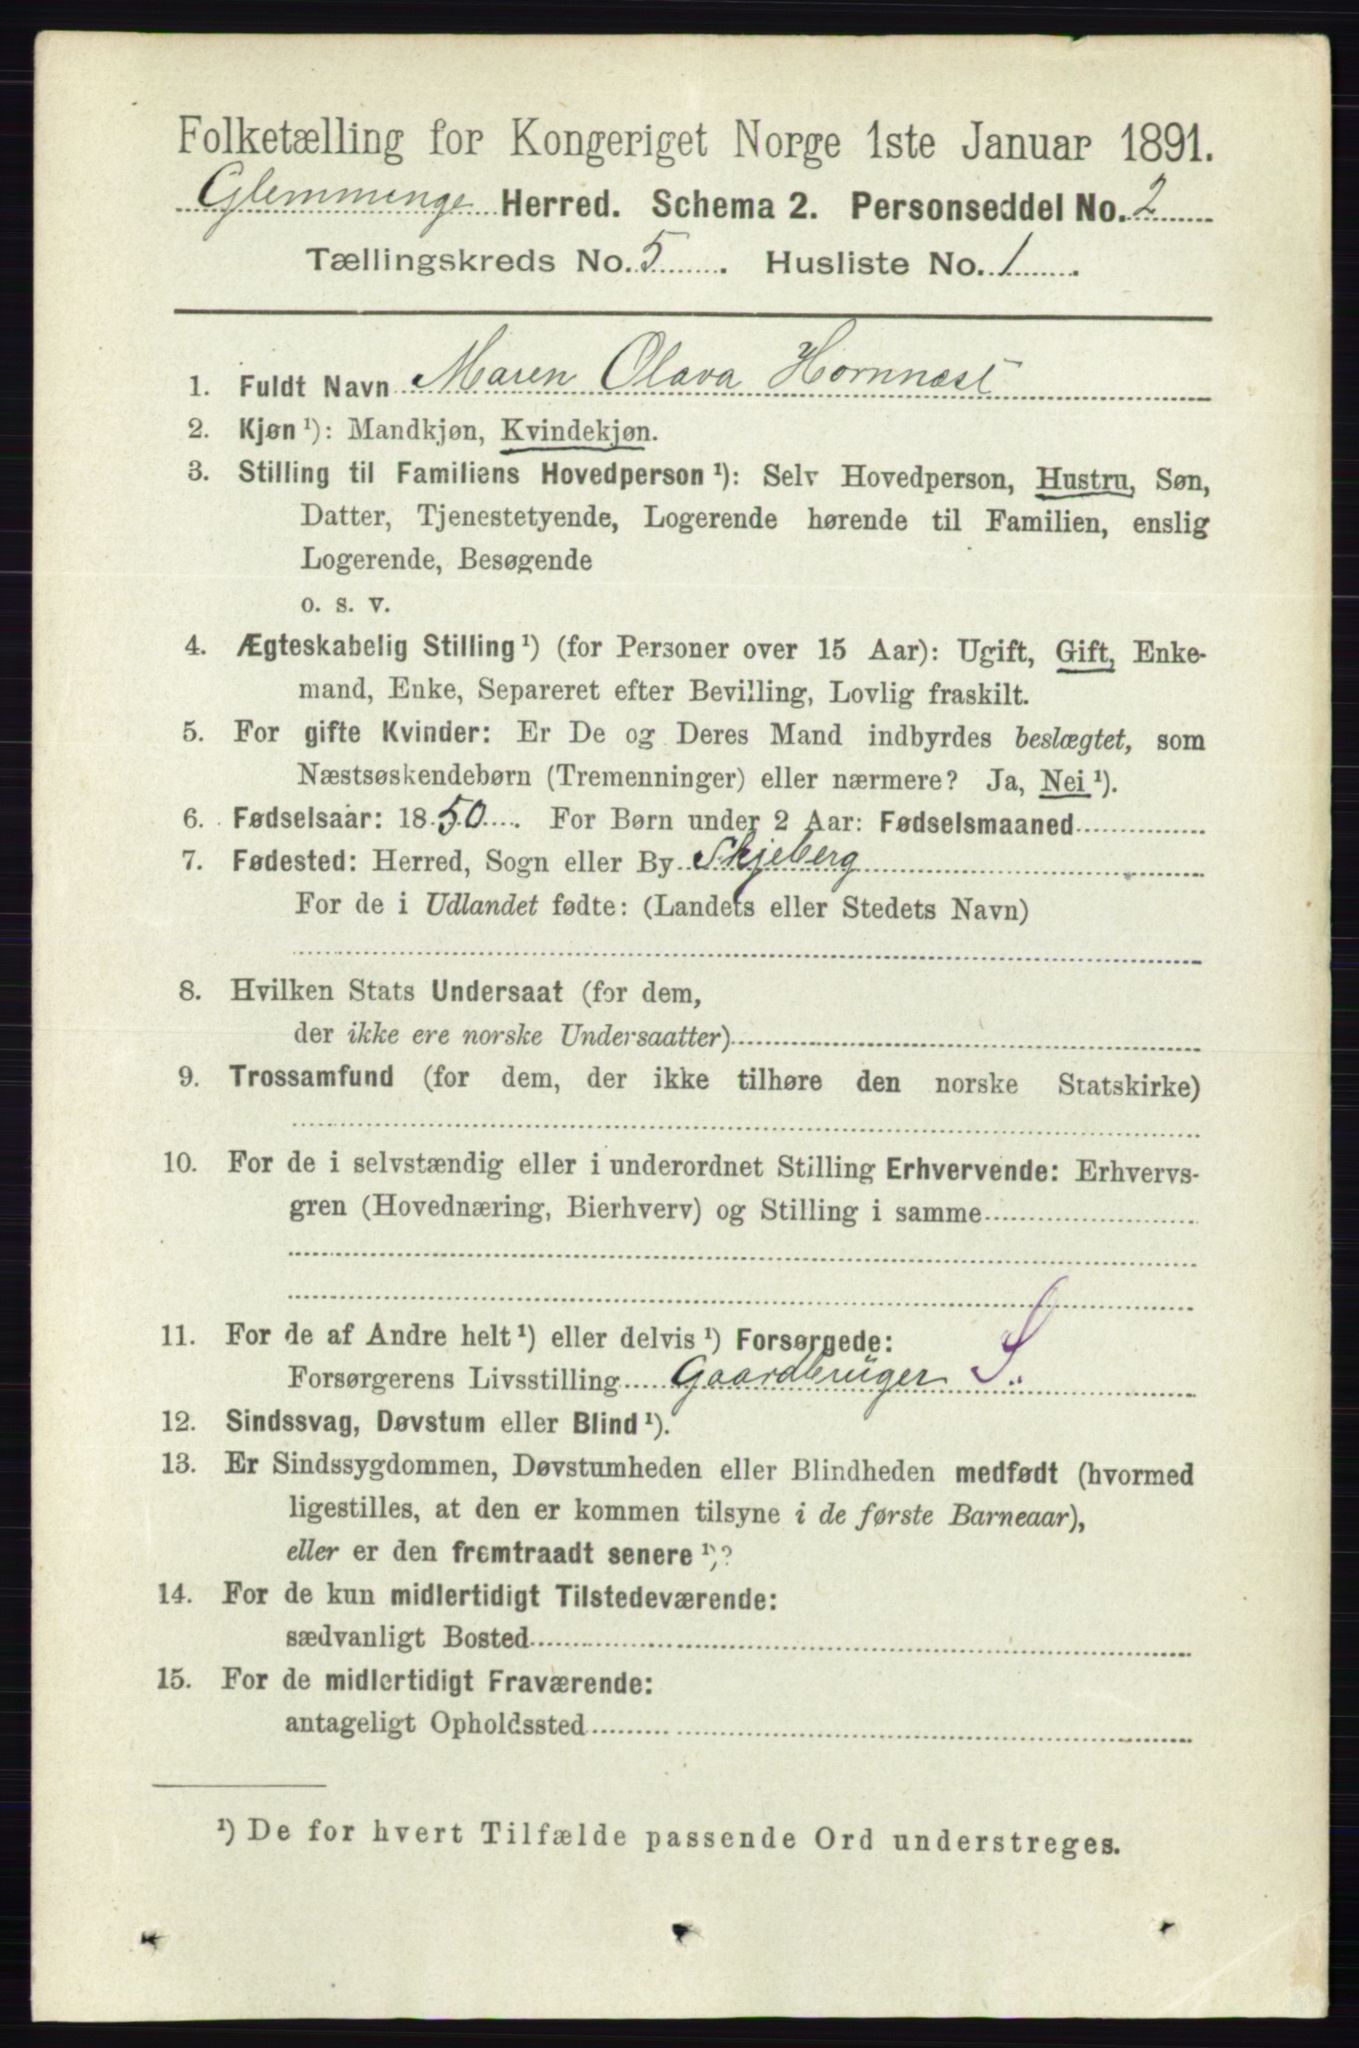 Folketælling for Kongeriget Norge 1ste Januar 1891.
Glemminge Herred. Schema 2. Personseddel No. 2
Tællingskreds No. 5. Husliste No. 1.
1. Fuldt Navn Maren Olava Hornnæst
2. Kjøn ¹): Mandkjøn, Kvindekjøn.
3. Stilling til Familiens Hovedperson ¹): Selv Hovedperson, Hustru, Søn,
Datter, Tjenestetyende, Logerende hørende til Familien, enslig
Logerende, Besøgende
o. s. v.
4. Ægteskabelig Stilling ¹) (for Personer over 15 Aar): Ugift, Gift, Enke-
mand, Enke, Separeret efter Bevilling, Lovlig fraskilt.
5. For gifte Kvinder: Er De og Deres Mand indbyrdes beslægtet, som
Næstsøskendebørn (Tremenninger) eller nærmere? Ja, Nei ¹).
6. Fødselsaar: 1850. For Børn under 2 Aar: Fødselsmaaned
7. Fødested: Herred, Sogn eller By Skjeberg
For de i Udlandet fødte: (Landets eller Stedets Navn)
8. Hvilken Stats Undersaat (for dem,
der ikke ere norske Undersaatter)
9. Trossamfund (for dem, der ikke tilhøre den norske Statskirke)
10. For de i selvstændig eller i underordnet Stilling Erhvervende: Erhvervs-
gren (Hovednæring, Bierhverv) og Stilling i samme
11. For de af Andre helt ¹) eller delvis ¹) Forsørgede:
Forsørgerens Livsstilling Gaardbruger S.
12. Sindssvag, Døvstum eller Blind ¹).
13. Er Sindssygdommen, Døvstumheden eller Blindheden medfødt (hvormed
ligestilles, at den er kommen tilsyne i de første Barneaar),
eller er den fremtraadt senere ¹)?
14. For de kun midlertidigt Tilstedeværende:
sædvanligt Bosted
15. For de midlertidigt Fraværende:
antageligt Opholdssted
¹) De for hvert Tilfælde passende Ord understreges.